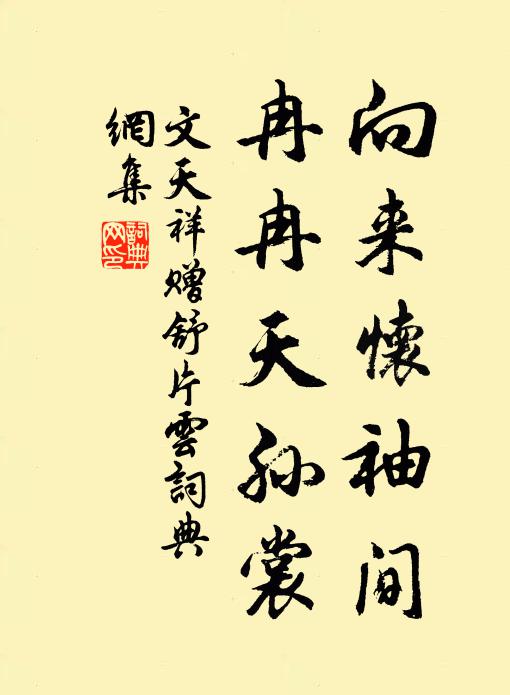 向来懷袖间
冉冉天孫裳
文天祥赠舒片雲詞典
網集
詞典网印